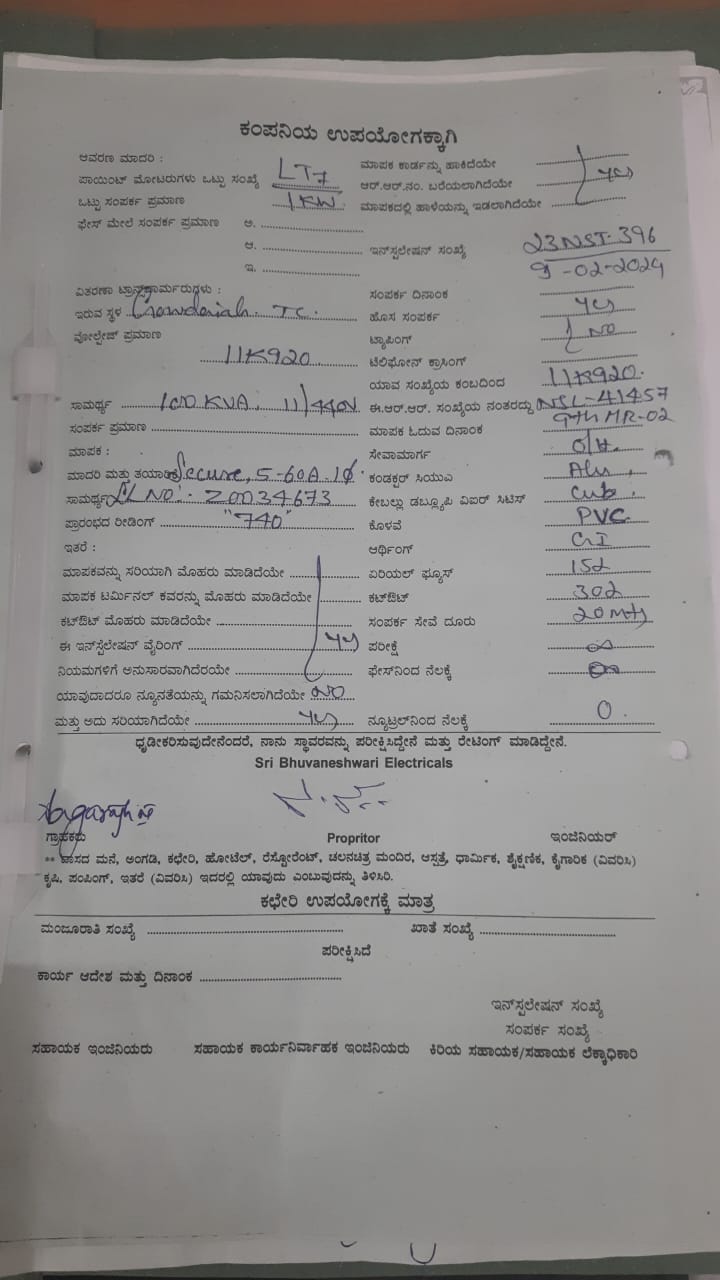 ಕಂಪನಿಯ ಉಪಯೋಗಕ್ಕಾಗಿ
ಆವರಣ ಮಾದರಿ : ಮಾಪಕ ಕಾರ್ಡನ್ನು ಹಾಕಿದೆಯೇ
ಪಾಯಿಂಟ್ ಮೋಟರುಗಳು ಒಟ್ಟು ಸಂಖ್ಯೆ LT7 ಆರ್.ಆರ್.ನಂ. ಬರೆಯಲಾಗಿದೆಯೇ yes
ಒಟ್ಟು ಸಂಪರ್ಕ ಪ್ರಮಾಣ 1KW ಮಾಪಕದಲ್ಲಿ ಹಾಳೆಯನ್ನು ಇಡಲಾಗಿದೆಯೇ
ಫೇಸ್ ಮೇಲೆ ಸಂಪರ್ಕ ಪ್ರಮಾಣ ಅ.
ಆ. ಇನ್‌ಸ್ಟಲೇಷನ್ ಸಂಖ್ಯೆ 23NST-396
ಇ. 9-02-2024
ವಿತರಣಾ ಟ್ರಾನ್ಸ್‌ಫಾರ್ಮರುಗಳು : ಸಂಪರ್ಕ ದಿನಾಂಕ
ಇರುವ ಸ್ಥಳ Gowdaiah. TC. ಹೊಸ ಸಂಪರ್ಕ yes
ವೋಲ್ಟೇಜ್ ಪ್ರಮಾಣ ಟ್ಯಾಪಿಂಗ್ NO
11K920 ಟೆಲಿಫೋನ್ ಕ್ರಾಸಿಂಗ್
ಯಾವ ಸಂಖ್ಯೆಯ ಕಂಬದಿಂದ 11K920.
ಸಾಮರ್ಥ್ಯ 100 KVA, 11/440V ಈ.ಆರ್.ಆರ್. ಸಂಖ್ಯೆಯ ನಂತರದ್ದು NSL-41457
ಸಂಪರ್ಕ ಪ್ರಮಾಣ ಮಾಪಕ ಓದುವ ದಿನಾಂಕ 9th MR-02
ಮಾಪಕ : ಸೇವಾಮಾರ್ಗ O/H.
ಮಾದರಿ ಮತ್ತು ತಯಾರಿಕೆ Secure, 5-60A 1ϕ. ಕಂಡಕ್ಟರ್ ಸಿಯುಎ Alu,
ಸಾಮರ್ಥ್ಯ SL NO: Z0034673 ಕೇಬಲ್ಲು ಡಬ್ಲ್ಯೂಪಿ ವಿಐರ್ ಸಿಟಿಸ್ Cub.
ಪ್ರಾರಂಭದ ರೀಡಿಂಗ್ "740" ಕೊಳವೆ PVC
ಇತರೆ : ಆರ್ಥಿಂಗ್ GI
ಮಾಪಕವನ್ನು ಸರಿಯಾಗಿ ಮೊಹರು ಮಾಡಿದೆಯೇ ಏರಿಯಲ್ ಫ್ಯೂಸ್ 15Ω
ಮಾಪಕ ಟರ್ಮಿನಲ್ ಕವರನ್ನು ಮೊಹರು ಮಾಡಿದೆಯೇ ಕಟ್‌ಔಟ್ 30Ω
ಕಟ್‌ಔಟ್ ಮೊಹರು ಮಾಡಿದೆಯೇ ಸಂಪರ್ಕ ಸೇವೆ ದೂರು 20 Mts
ಈ ಇನ್‌ಸ್ಟಲೇಷನ್ ವೈರಿಂಗ್ yes ಪರೀಕ್ಷೆ ∞
ನಿಯಮಗಳಿಗೆ ಅನುಸಾರವಾಗಿದೆರಯೇ ಫೇಸ್‌ನಿಂದ ನೆಲಕ್ಕೆ ∞
ಯಾವುದಾದರೂ ನ್ಯೂನತೆಯನ್ನು ಗಮನಿಸಲಾಗಿದೆಯೇ NO
ಮತ್ತು ಅದು ಸರಿಯಾಗಿದೆಯೇ yes ನ್ಯೂಟ್ರಲ್‌ನಿಂದ ನೆಲಕ್ಕೆ 0.
ಧೃಡೀಕರಿಸುವುದೇನೆಂದರೆ, ನಾನು ಸ್ಥಾವರವನ್ನು ಪರೀಕ್ಷಿಸಿದ್ದೇನೆ ಮತ್ತು ರೇಟಿಂಗ್ ಮಾಡಿದ್ದೇನೆ.
Sri Bhuvaneshwari Electricals
ಗ್ರಾಹಕರು Propritor ಇಂಜಿನಿಯರ್
** ವಾಸದ ಮನೆ, ಅಂಗಡಿ, ಕಛೇರಿ, ಹೋಟೆಲ್, ರೆಸ್ಟೋರೆಂಟ್, ಚಲನಚಿತ್ರ ಮಂದಿರ, ಆಸ್ಪತ್ರೆ, ಧಾರ್ಮಿಕ, ಶೈಕ್ಷಣಿಕ, ಕೈಗಾರಿಕ (ವಿವರಿಸಿ)
ಕೃಷಿ, ಪಂಪಿಂಗ್, ಇತರೆ (ವಿವರಿಸಿ) ಇದರಲ್ಲಿ ಯಾವುದು ಎಂಬುವುದನ್ನು ತಿಳಿಸಿರಿ.
ಕಛೇರಿ ಉಪಯೋಗಕ್ಕೆ ಮಾತ್ರ
ಮಂಜೂರಾತಿ ಸಂಖ್ಯೆ ಖಾತೆ ಸಂಖ್ಯೆ
ಪರೀಕ್ಷಿಸಿದೆ
ಕಾರ್ಯ ಆದೇಶ ಮತ್ತು ದಿನಾಂಕ
ಇನ್‌ಸ್ಪಲೇಷನ್ ಸಂಖ್ಯೆ
ಸಂಪರ್ಕ ಸಂಖ್ಯೆ
ಸಹಾಯಕ ಇಂಜಿನಿಯರು ಸಹಾಯಕ ಕಾರ್ಯನಿರ್ವಾಹಕ ಇಂಜಿನಿಯರು ಕಿರಿಯ ಸಹಾಯಕ/ಸಹಾಯಕ ಲೆಕ್ಕಾಧಿಕಾರಿ